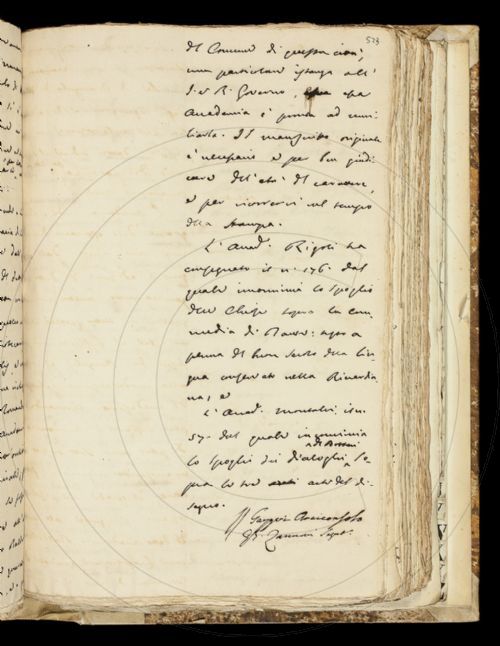 523
del Comune di questa città,
una particolare istanza all'
I. e R. Governo, essa
Accademia è pronta ad umi-
liarla. Il manoscritto originale
è necessario e per ben giudi-
care dell'età del carattere,
e per ricorrervi nel tempo
della stampa.
L'Accad. Rigoli ha
consegnato il n. 176. dal
quale incomincia lo spoglio
sopra la Com-
media di
penna del buon secolo della lin-
gua conservato nella Riccardia-
na; e
L'Accad. Montalvi il n.
57. dal quale incomincia
lo spoglio dei Dialoghi so-
pra le tre arti del di-
segno.
Zannoni Segret.